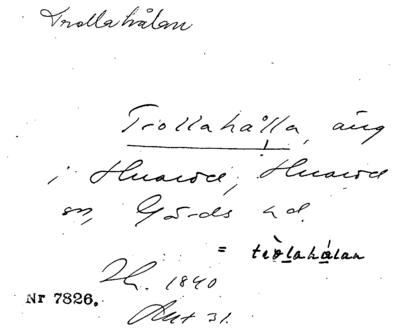 Trollahålan
Trollahålla, äng
i Huaröd, Huaröd
sn, Gärds hd.
= tròlahálan
1840
Nr 7826. Akt 31.